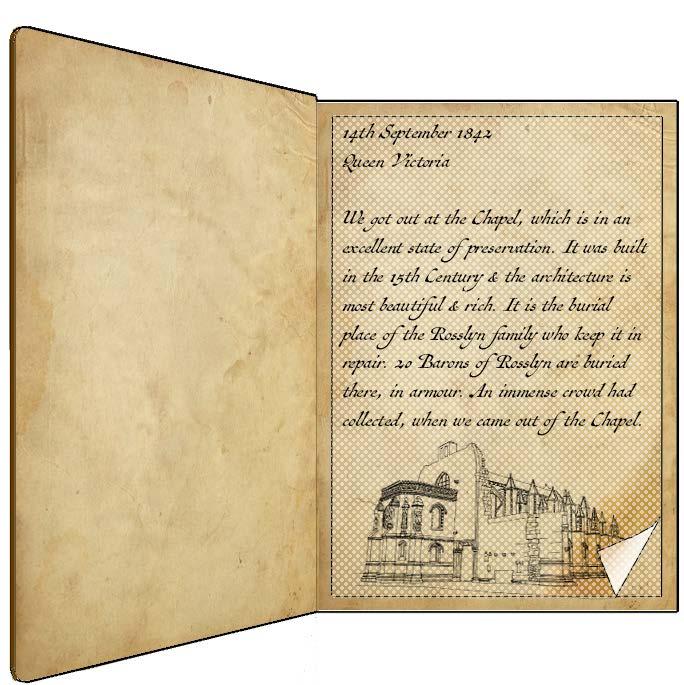 14th September 1842
Queen Victoria
We got out at the Chapel, which is in an
excellent state of preservation. It was built
in the 15th Century & the architecture is
most beautiful & rich. It is the burial
place of the Rosslyn family who keep it in
repair. 20 Barons of Rosslyn are buried
there, in armour. An immense crowd had
collected, when we came out of the Chapel.